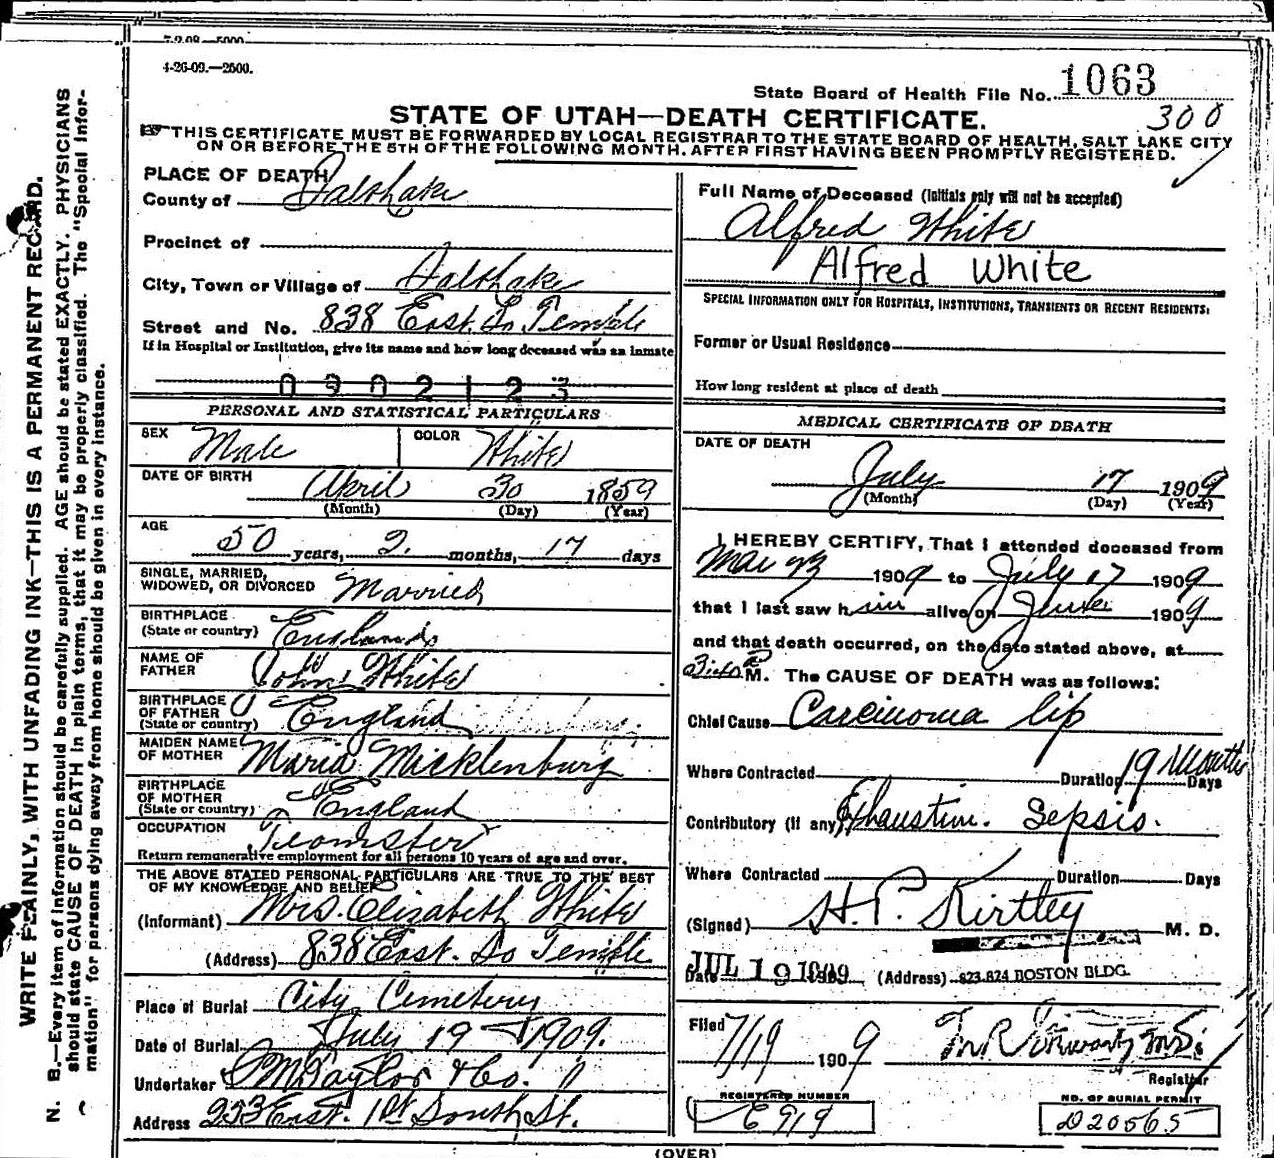 7-2-08—5000
4-26-09.—2500.
State Board of Health File No. 1063
STATE OF UTAH—DEATH CERTIFICATE.
300
THIS CERTIFICATE MUST BE FORWARDED BY LOCAL REGISTRAR TO THE STATE BOARD OF HEALTH, SALT LAKE CITY
ON OR BEFORE THE 5TH OF THE FOLLOWING MONTH. AFTER FIRST HAVING BEEN PROMPTLY REGISTERED.
WRITE PLAINLY, WITH UNFADING INK—THIS IS A PERMANENT RECORD.
N. B.—Every item of information should be carefully supplied. AGE should be stated EXACTLY. PHYSICIANS
should state CAUSE OF DEATH in plain terms, that it may be properly classified. The "Special Infor-
mation" for persons dying away from home should be given in every instance.
PLACE OF DEATH
County of Salt Lake
Precinct of
City, Town or Village of Salt Lake
Street and No. 838 East So Temple
If in Hospital or Institution, give its name and how long deceased was an inmate
0902123
PERSONAL AND STATISTICAL PARTICULARS
SEX Male COLOR White
DATE OF BIRTH April 30 1859
(Month) (Day) (Year)
AGE 50 years, 2 months, 17 days
SINGLE, MARRIED,
WIDOWED, OR DIVORCED Married
BIRTHPLACE
(State or country) England
NAME OF
FATHER John White
BIRTHPLACE
OF FATHER
(State or country) England
MAIDEN NAME
OF MOTHER Maria Micklenburg
BIRTHPLACE
OF MOTHER
(State or country) England
OCCUPATION Teamster
Return remunerative employment for all persons 10 years of age and over.
THE ABOVE STATED PERSONAL PARTICULARS ARE TRUE TO THE BEST
OF MY KNOWLEDGE AND BELIEF
(Informant) Mrs. Elizabeth White
(Address) 838 East. So Temple
Place of Burial City Cemetery
Date of Burial July 19 1909.
Undertaker S M Taylor & Co.
Address 253 East. 1st South St.
Full Name of Deceased (Initials only will not be accepted)
Alfred White
Alfred White
SPECIAL INFORMATION ONLY FOR HOSPITALS, INSTITUTIONS, TRANSIENTS OR RECENT RESIDENTS:
Former or Usual Residence
How long resident at place of death
MEDICAL CERTIFICATE OF DEATH
DATE OF DEATH
July 17 1909
(Month) (Day) (Year)
I HEREBY CERTIFY, That I attended deceased from
Mar 23 1909 to July 17 1909
that I last saw him alive on June 1909
and that death occurred, on the date stated above, at
3:40 P M. The CAUSE OF DEATH was as follows:
Chief Cause Carcinoma lip
Where Contracted Duration 19 Months Days
Contributory (if any) Exhaustion. Sepsis.
Where Contracted Duration Days
(Signed) H. P. Kirtley M. D.
Date JUL 19 1909 (Address) 823-824 BOSTON BLDG.
Filed 7/19 1909
Registrar
REGISTERED NUMBER
E 919
NO. OF BURIAL PERMIT
D20565
(OVER)